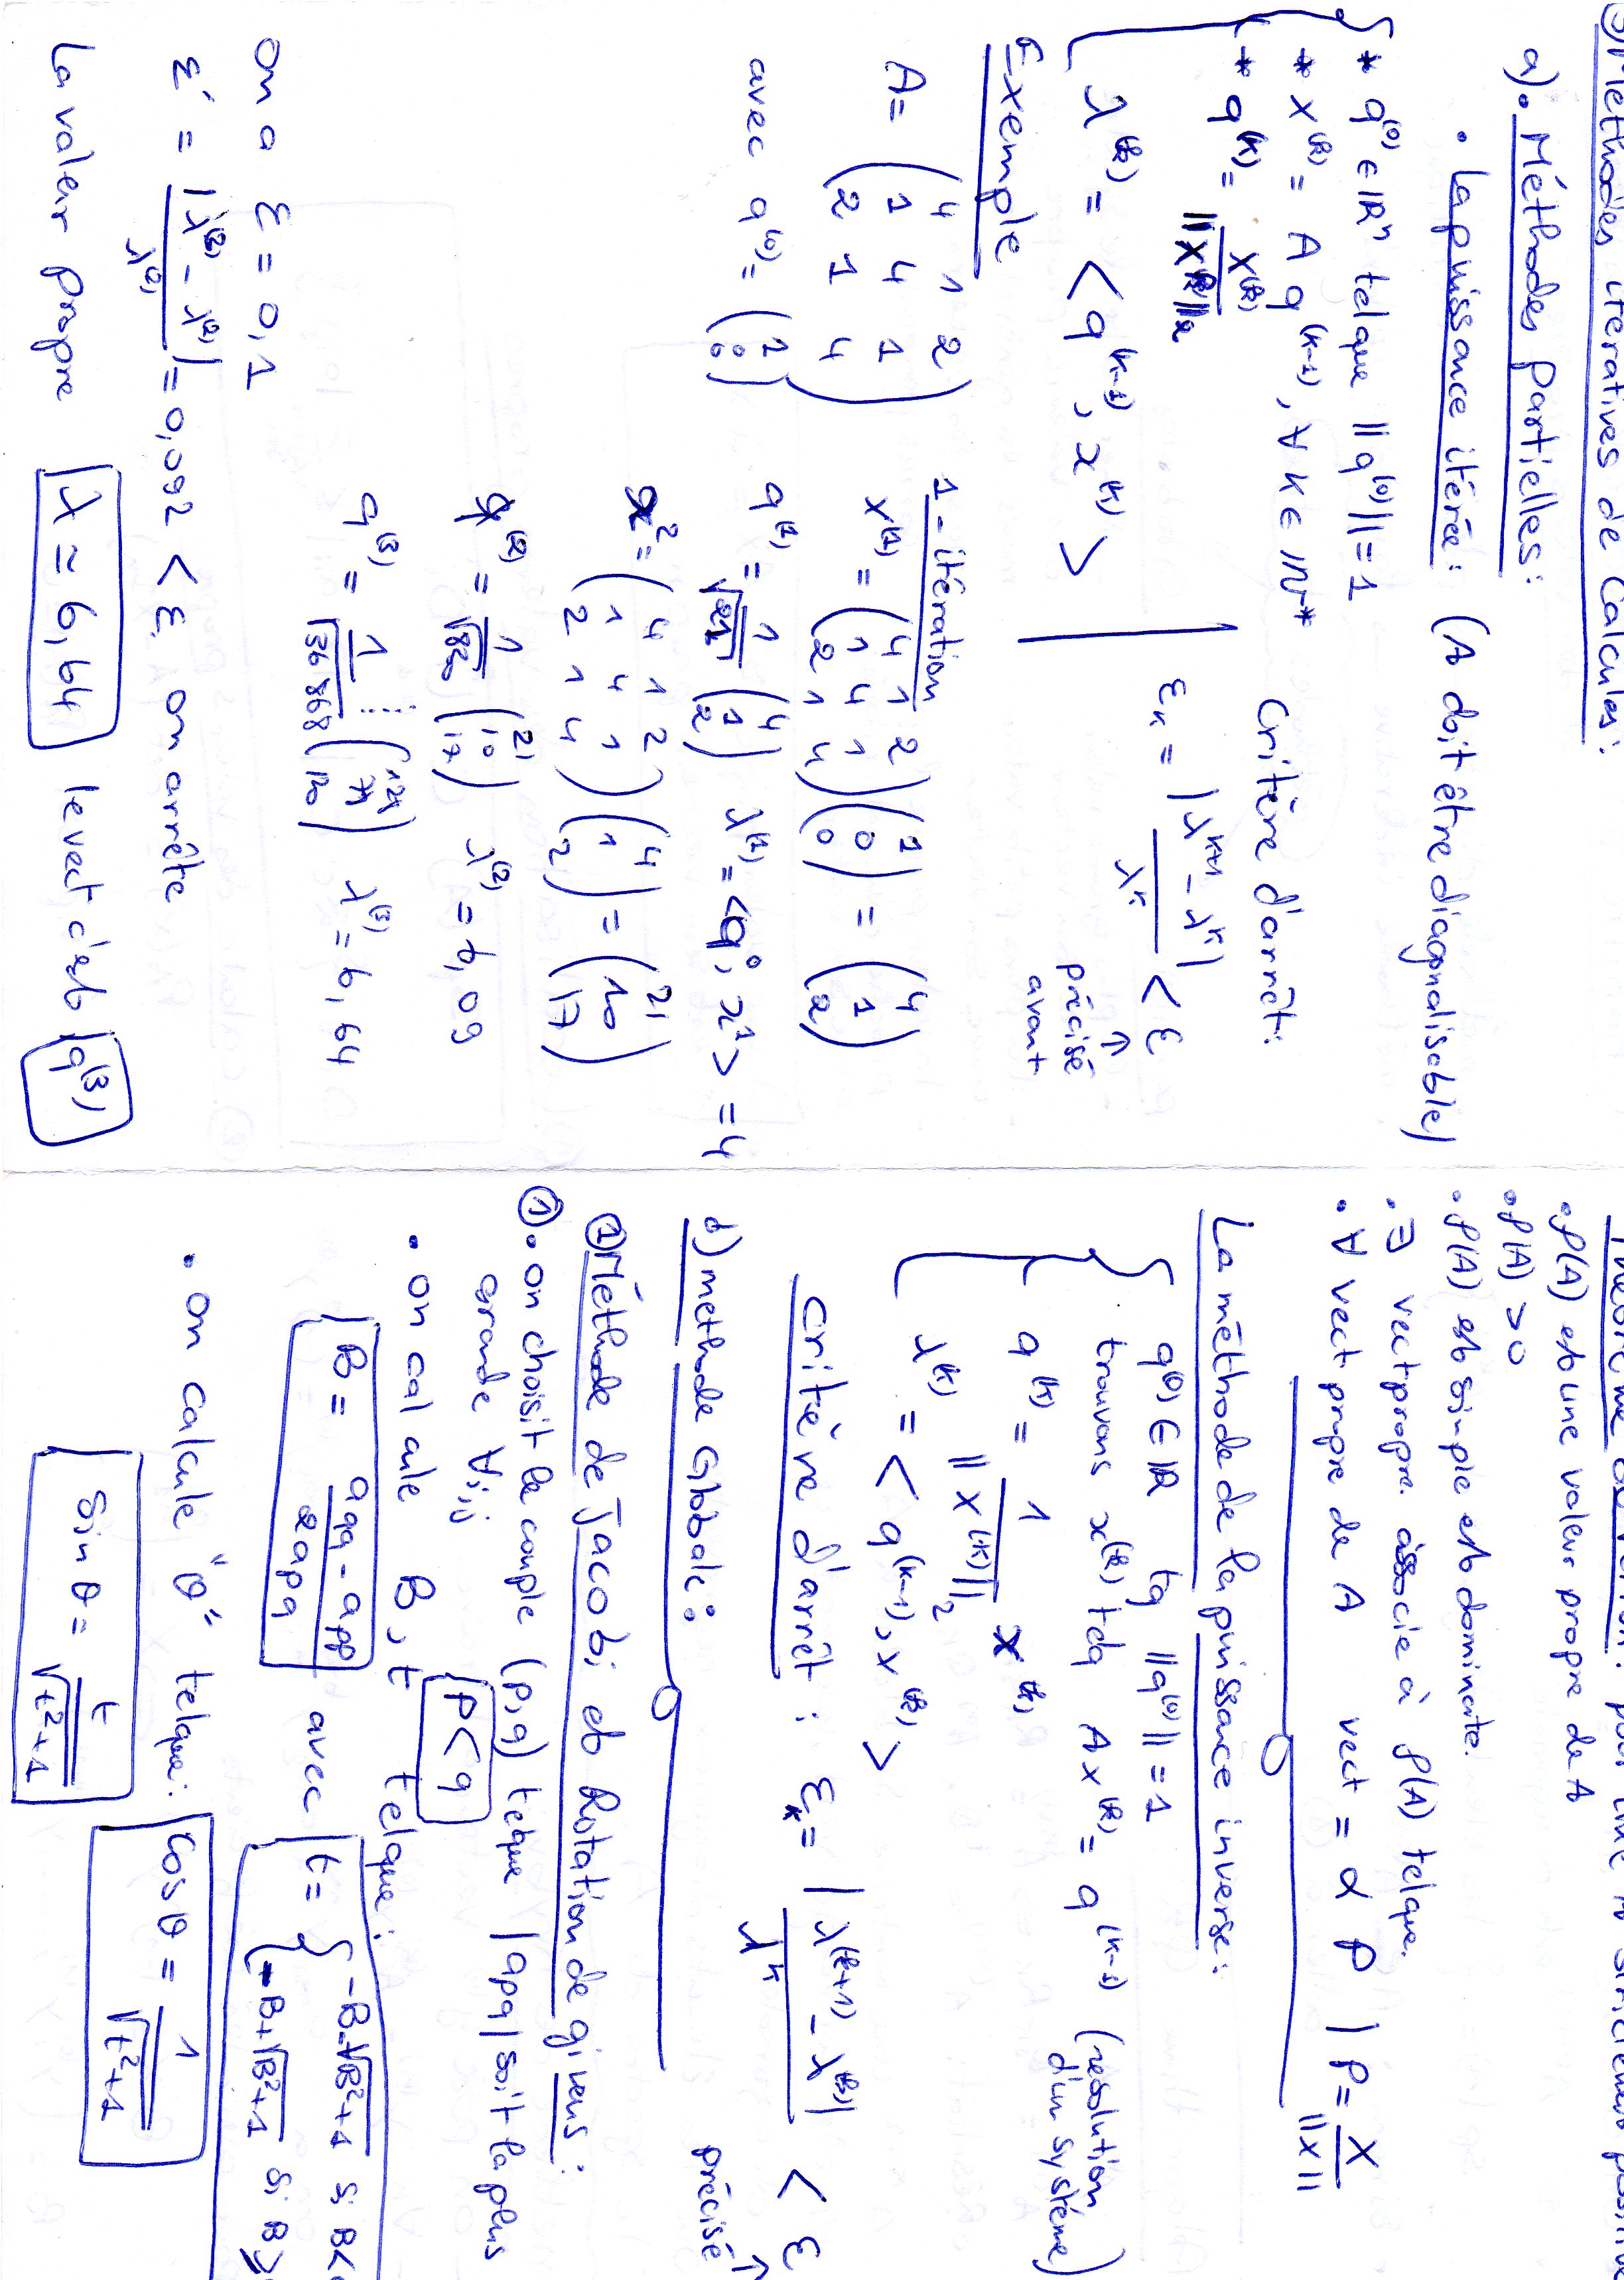 3) Méthodes itératives de Calcules :
a). Méthodes Partielles :
• La puissance itérée : (A doit être diagonalisable)
* q^(0) ∈ IR^n tel que ||q^(0)|| = 1
* x^(k) = A q^(k-1), ∀ K ∈ IN*
* q^(k) = x^(k) / ||x^(k)||_2
λ^(k) = < q^(k-1), x^(k) >
Critère d'arrêt :
ε_k = |λ^(k+1) - λ^k| / λ^k < ε
↑
précisé
avant
Exemple
A = (4 1 2
1 4 1
2 1 4)
avec q^(0) = (1
0
0)
1 - itération
x^(1) = (4 1 2
1 4 1
2 1 4) (1
0
0) = (4
1
2)
q^(1) = 1/√21 (4
1
2) λ^(1) = <q^0, x^1> = 4
x^2 = (4 1 2
1 4 1
2 1 4) (4
1
2) = (21
10
17)
q^(2) = 1/√830 (21
10
17) λ^(2) = 6,09
q^(3) = 1/√36868 ( 120) λ^(3) = 6,64
on a ε = 0,1
ε' = |λ^(3) - λ^(2)| / λ^(2) = 0,092 < ε on arrête
La valeur propre λ ≃ 6,64 le vect c'est q^(3)
• ρ(A) est une valeur propre de A
• ρ(A) > 0
• ρ(A) est simple est dominate.
• ∃ vect propre. associe à ρ(A) telque.
• ∀ vect propre de A vect = α P | P = X / ||X||
La méthode de la puissance inverse :
q^(0) ∈ IR tq ||q^(0)|| = 1
trouvons x^(k) telq A x^(k) = q^(k-1) (resolution
d'un système)
q^(k) = 1 / ||x^(k)||_2 x^(k)
λ^(k) = < q^(k-1), x^(k) >
critère d'arrêt : ε_k = |λ^(k+1) - λ^(k)| / λ^k < ε
↑
précisé
b) methode Globale :
① Méthode de Jacobi et Rotation de givens :
①• on choisit le couple (p,q) telque |apq| soit la plus
grande ∀i,j p < q
• on calcule B, t telque :
B = (aqq - app) / 2apq avec t = { -B-√(B²+1) si B<
-B+√(B²+1) si B≥
• on calcule "θ" telque : cos θ = 1/√(t²+1)
sin θ = t/√(t²+1)